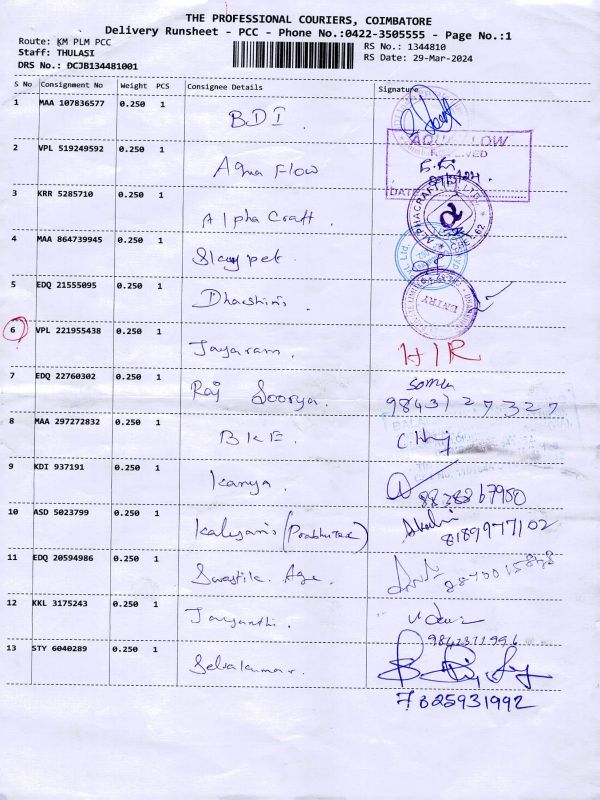 THE PROFESSIONAL COURIERS, COIMBATORE
Delivery Runsheet - PCC - Phone No.:0422-3505555 - Page No.:1
Route: KM PLM PCC
Staff: THULASI
DRS No.: DCJB134481001
RS No.: 1344810
RS Date: 29-Mar-2024
S No Consignment No Weight PCS Consignee Details Signature
1 MAA 107836577 0.250 1 BDI
AQUA FLOW
RECEIVED
2 VPL 519249592 0.250 1 Aqua Flow
DATE
3 KRR 5285710 0.250 1 Alpha Craft.
4 MAA 864739945 0.250 1
5 EDQ 21555095 0.250 1 Dharshini.
ENTRY
6 VPL 221955438 0.250 1 Jayaram. HIR
7 EDQ 22760302 0.250 1 Raj Soorya. Soma
98437 27327
8 MAA 297272832 0.250 1 BKE.
9 KDI 937191 0.250 1 Kanya.
10 ASD 5023799 0.250 1 Kalyani (Prabhutex)
8189977102
11 EDQ 20594986 0.250 1 Swastik. Age.
12 KKL 3175243 0.250 1 Jayanthi.
9842371996
13 STY 6040289 0.250 1 Selvakumar.
7825931992